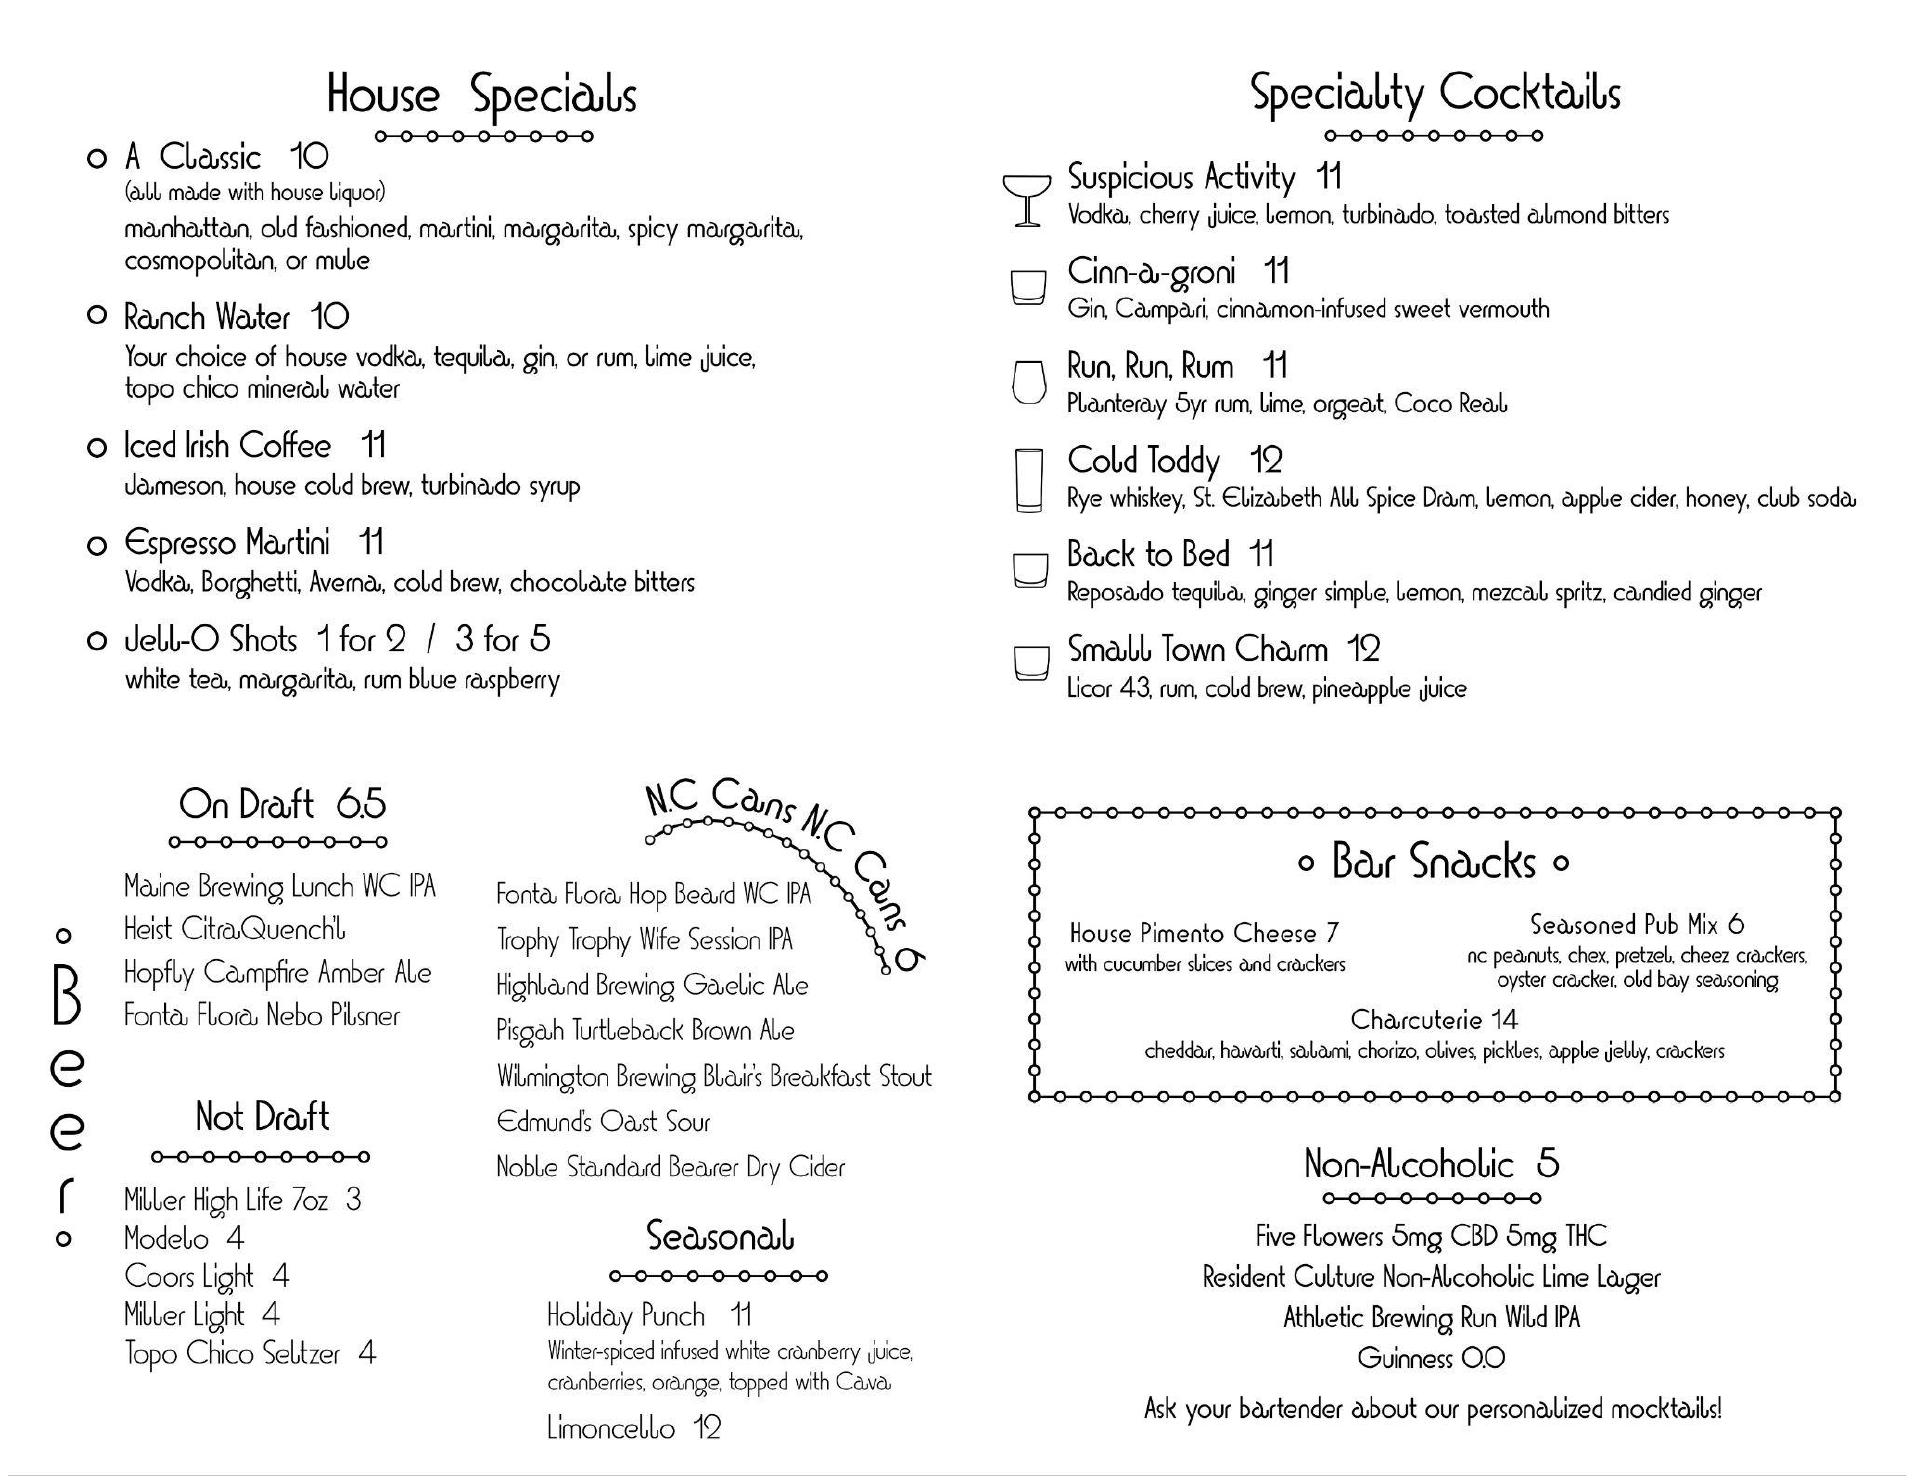 House Specials
A Classic 10
(all made with house liquor)
manhattan, old fashioned, martini, margarita, spicy margarita,
cosmopolitan, or mule
Ranch Water 10
Your choice of house vodka, tequila, gin, or rum, lime juice,
topo chico mineral water
Iced Irish Coffee 11
Jameson, house cold brew, turbinado syrup
Espresso Martini 11
Vodka, Borghetti, Averna, cold brew, chocolate bitters
Jell-O Shots 1 for 2 / 3 for 5
white tea, margarita, rum blue raspberry
Specialty Cocktails
Suspicious Activity 11
Vodka, cherry juice, lemon, turbinado, toasted almond bitters
Cinn-a-groni 11
Gin, Campari, cinnamon-infused sweet vermouth
Run, Run, Rum 11
Planteray 5yr rum, lime, orgeat, Coco Real
Cold Toddy 12
Rye whiskey, St. Elizabeth All Spice Dram, lemon, apple cider, honey, club soda
Back to Bed 11
Reposado tequila, ginger simple, lemon, mezcal spritz, candied ginger
Small Town Charm 12
Licor 43, rum, cold brew, pineapple juice
Beer
On Draft 6.5
Maine Brewing Lunch WC IPA
Heist CitraQuench'l
Hopfly Campfire Amber Ale
Fonta Flora Nebo Pilsner
Not Draft
Miller High Life 7oz 3
Modelo 4
Coors Light 4
Miller Light 4
Topo Chico Seltzer 4
N.C Cans N.C Cans 6
Fonta Flora Hop Beard WC IPA
Trophy Trophy Wife Session IPA
Highland Brewing Gaelic Ale
Pisgah Turtleback Brown Ale
Wilmington Brewing Blair's Breakfast Stout
Edmund's Oast Sour
Noble Standard Bearer Dry Cider
Seasonal
Holiday Punch 11
Winter-spiced infused white cranberry juice,
cranberries, orange, topped with Cava
Limoncello 12
Bar Snacks
House Pimento Cheese 7
with cucumber slices and crackers
Seasoned Pub Mix 6
nc peanuts, chex, pretzel, cheez crackers,
oyster cracker, old bay seasoning
Charcuterie 14
cheddar, havarti, salami, chorizo, olives, pickles, apple jelly, crackers
Non-Alcoholic 5
Five Flowers 5mg CBD 5mg THC
Resident Culture Non-Alcoholic Lime Lager
Athletic Brewing Run Wild IPA
Guinness 0.0
Ask your bartender about our personalized mocktails!